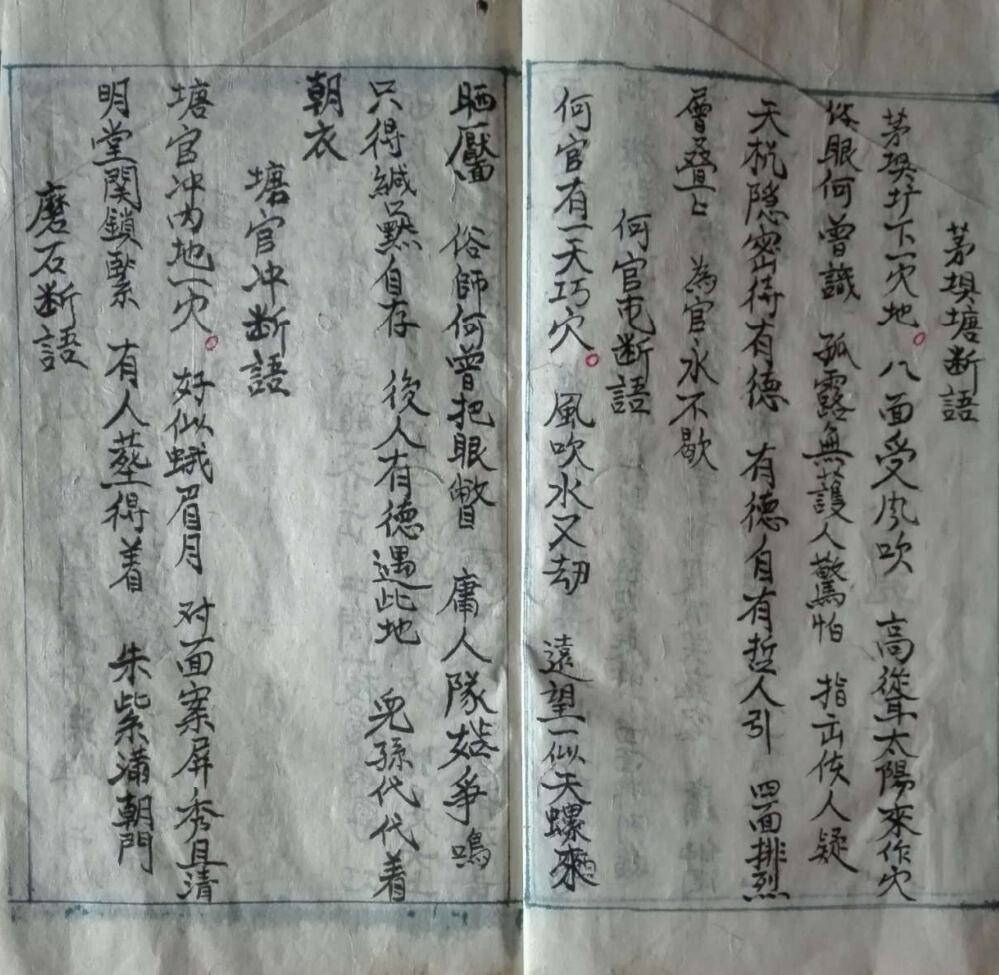 茅坝塘断語
茅坝圩下一穴地。八面受風吹 高聳太陽來作穴
你眼何曾識 孤露無護人驚怕 指出俠人疑
天机隱密待有德 有德自有哲人引 四面排烈
層叠上 為官永不歇
何官屯断語
何官有一天巧穴。風吹水又劫 遠望一似天螺來
晒靨 俗師何曾把眼瞥 庸人隊 爭鳴
只得緘默自存 後人有德遇此地 兒孫代代着
朝衣
塘官冲断語
塘官冲内地一穴。好似蛾眉月 对面案屏秀且清
明堂関鎖緊 有人塟得着 朱紫满朝門
磨石断語